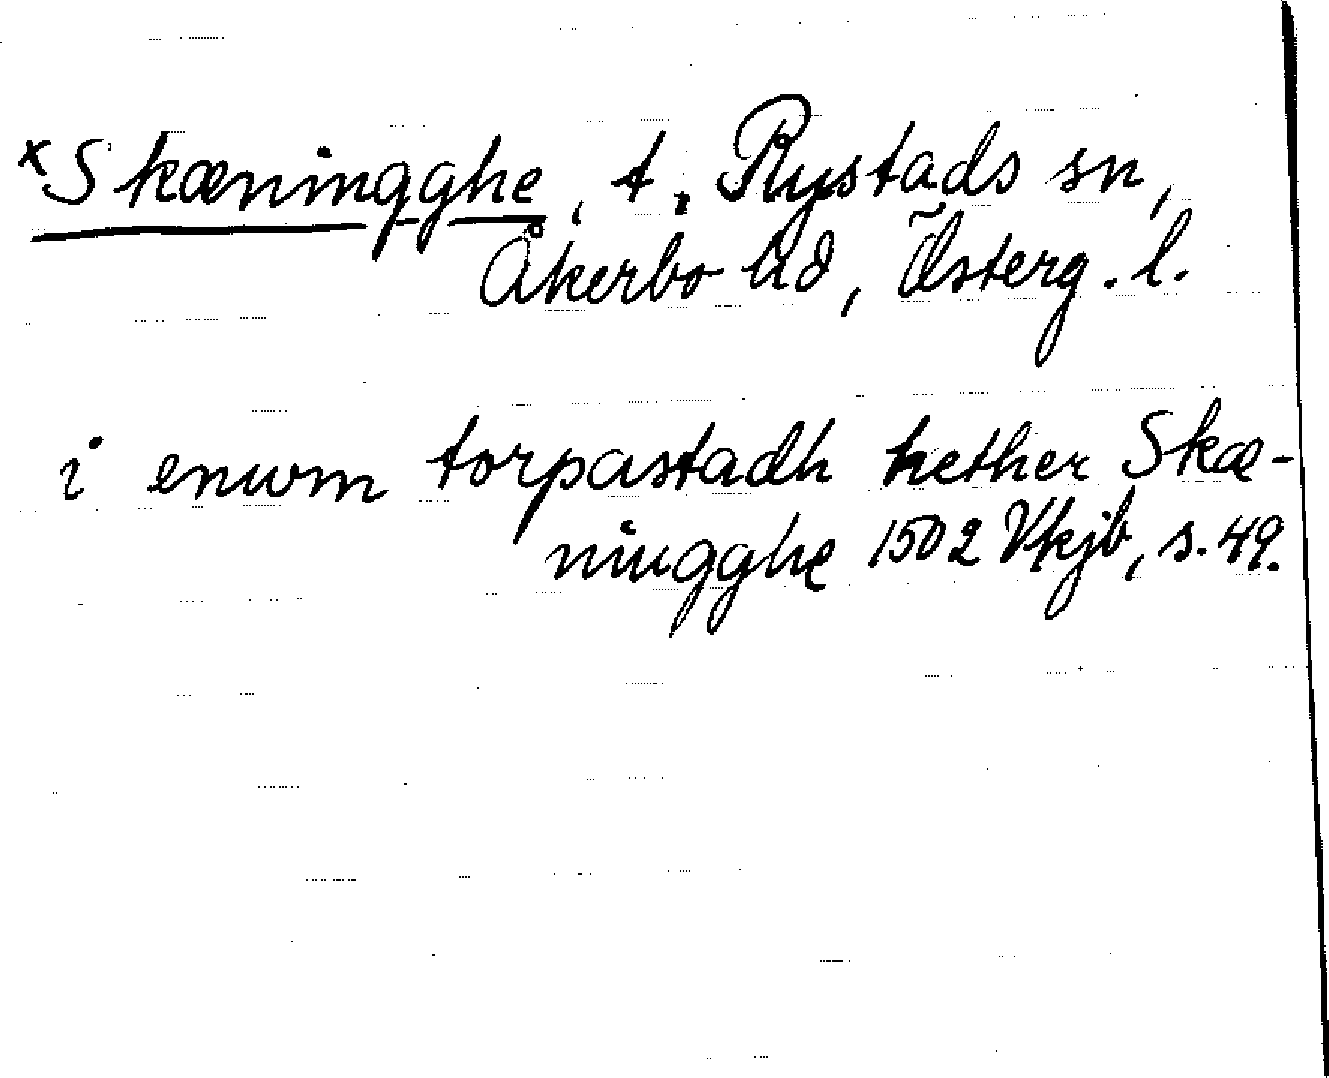 ×Skæningghe, t. Rystads sn,
Åkerbo hd, Österg. l.
i enwm torpastadh hether Skæ-
ningghe 1502 Vkjb, s. 49.